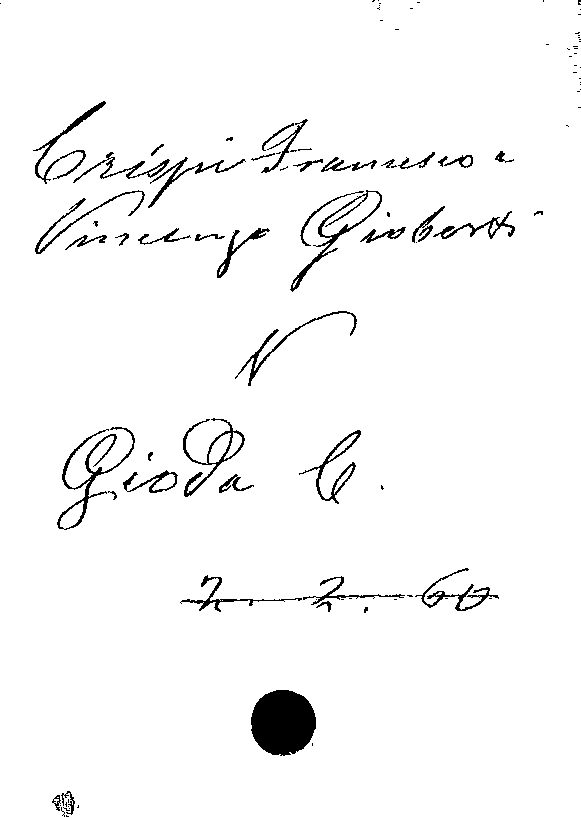 Crispi Francesco e
Vincenzo Gioberti
V
Gioda C.
2. 2. 60